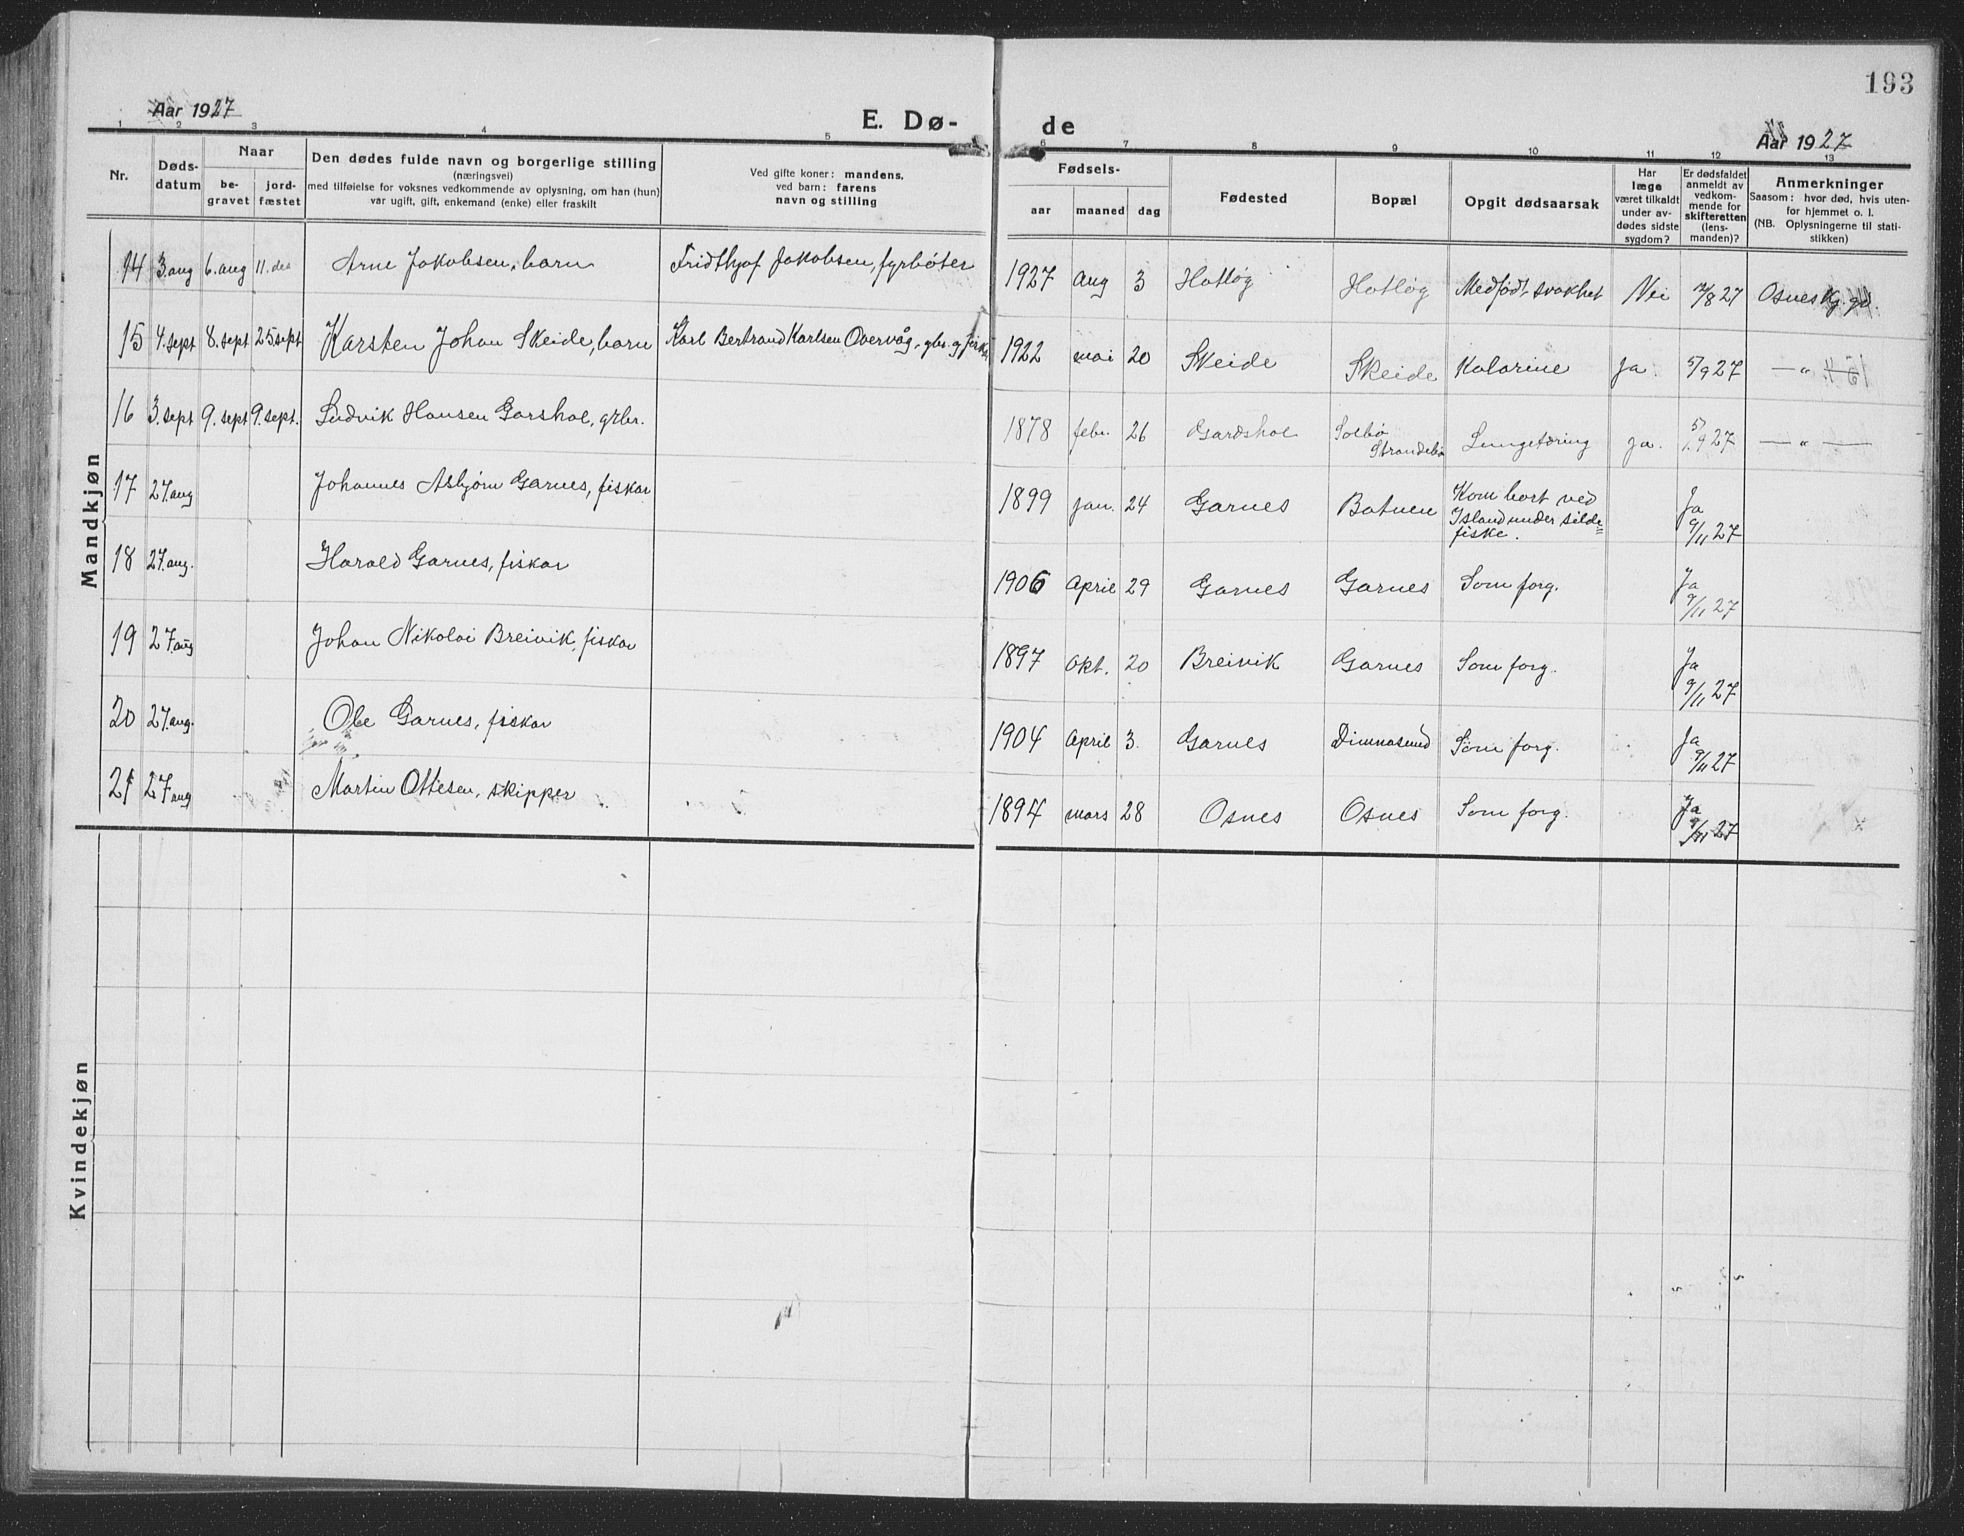 193
Aar 1927
E. Dø-
de
Aar 1927
1 2 3 4 5 6 7 8 9 10 11 12 13
Nr.
Døds-
datum
Naar
be-
gravet
jord-
fæstet
Den dødes fulde navn og borgerlige stilling
(næringsvei)
med tilføielse for voksnes vedkommende av oplysning, om han (hun)
var ugift, gift, enkemand (enke) eller fraskilt
Ved gifte koner: mandens,
ved barn: farens
navn og stilling
Fødsels-
aar maaned dag
Fødested
Bopæl
Opgit dødsaarsak
Har
læge
været tilkaldt
under av-
dødes sidste
sygdom?
Er dødsfaldet
anmeldt av
vedkom-
mende for
skifteretten
(lens-
manden)?
Anmerkninger
Saasom: hvor død, hvis uten-
for hjemmet o. l.
(NB. Oplysningerne til stati-
stikken)
Mandkjøn
14 3. aug 6. aug 11. des Arne Jakobsen, barn Fridthjof Jakobsen, fyrbøter 1927 Aug 3 Hatløy Hatløy Medfødt svakhet Nei /8 27 Osnes kg. gd.
15 4. sept 8. sept 25 sept Karsten Johan Skeide, barn Karl Bertrand Karlsen Overvåg, gbr. og fisk. 1922 mai 20 Skeide Skeide Kolarine Ja 5/9 27 — " —
16 3. sept 9. sept 9. sept. Ludvik Hansen Garshol, grbr. 1878 febr. 26 Gardshol Solbø
Strandabø Lungetæring ja. 5/9 27 — " —
17 27. aug Johannes Asbjørn Garnes, fiskar 1899 jan. 24 Garnes Botnen Kom bort ved
Island under silde=
fiske. Ja
9/11 27
18 27. aug. Harald Garnes, fiskar 1906 April 29 Garnes Garnes Som forg. Ja
9/11 27
19 27. aug Johan Nikolai Breivik, fiskar 1897 Okt. 20 Breivik Garnes Som forg. Ja
9/11 27
20 27. aug. Ole Garnes, fiskar 1904 April 3. Garnes Dimnasund Som forg. Ja
9/11 27
21 27 aug Martin Ottesen, skipper 1894 mars 28 Osnes Osnes Som forg. Ja
9/11 27
Kvindekjøn